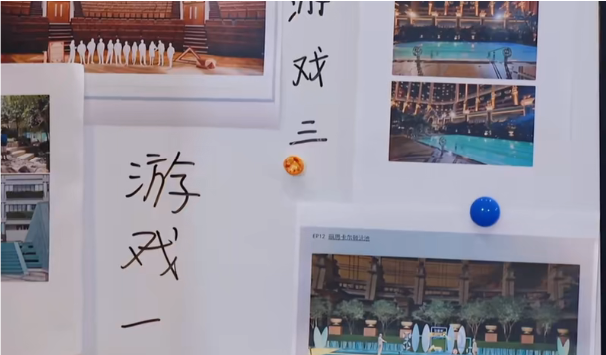 游戏三
游戏一
EP12